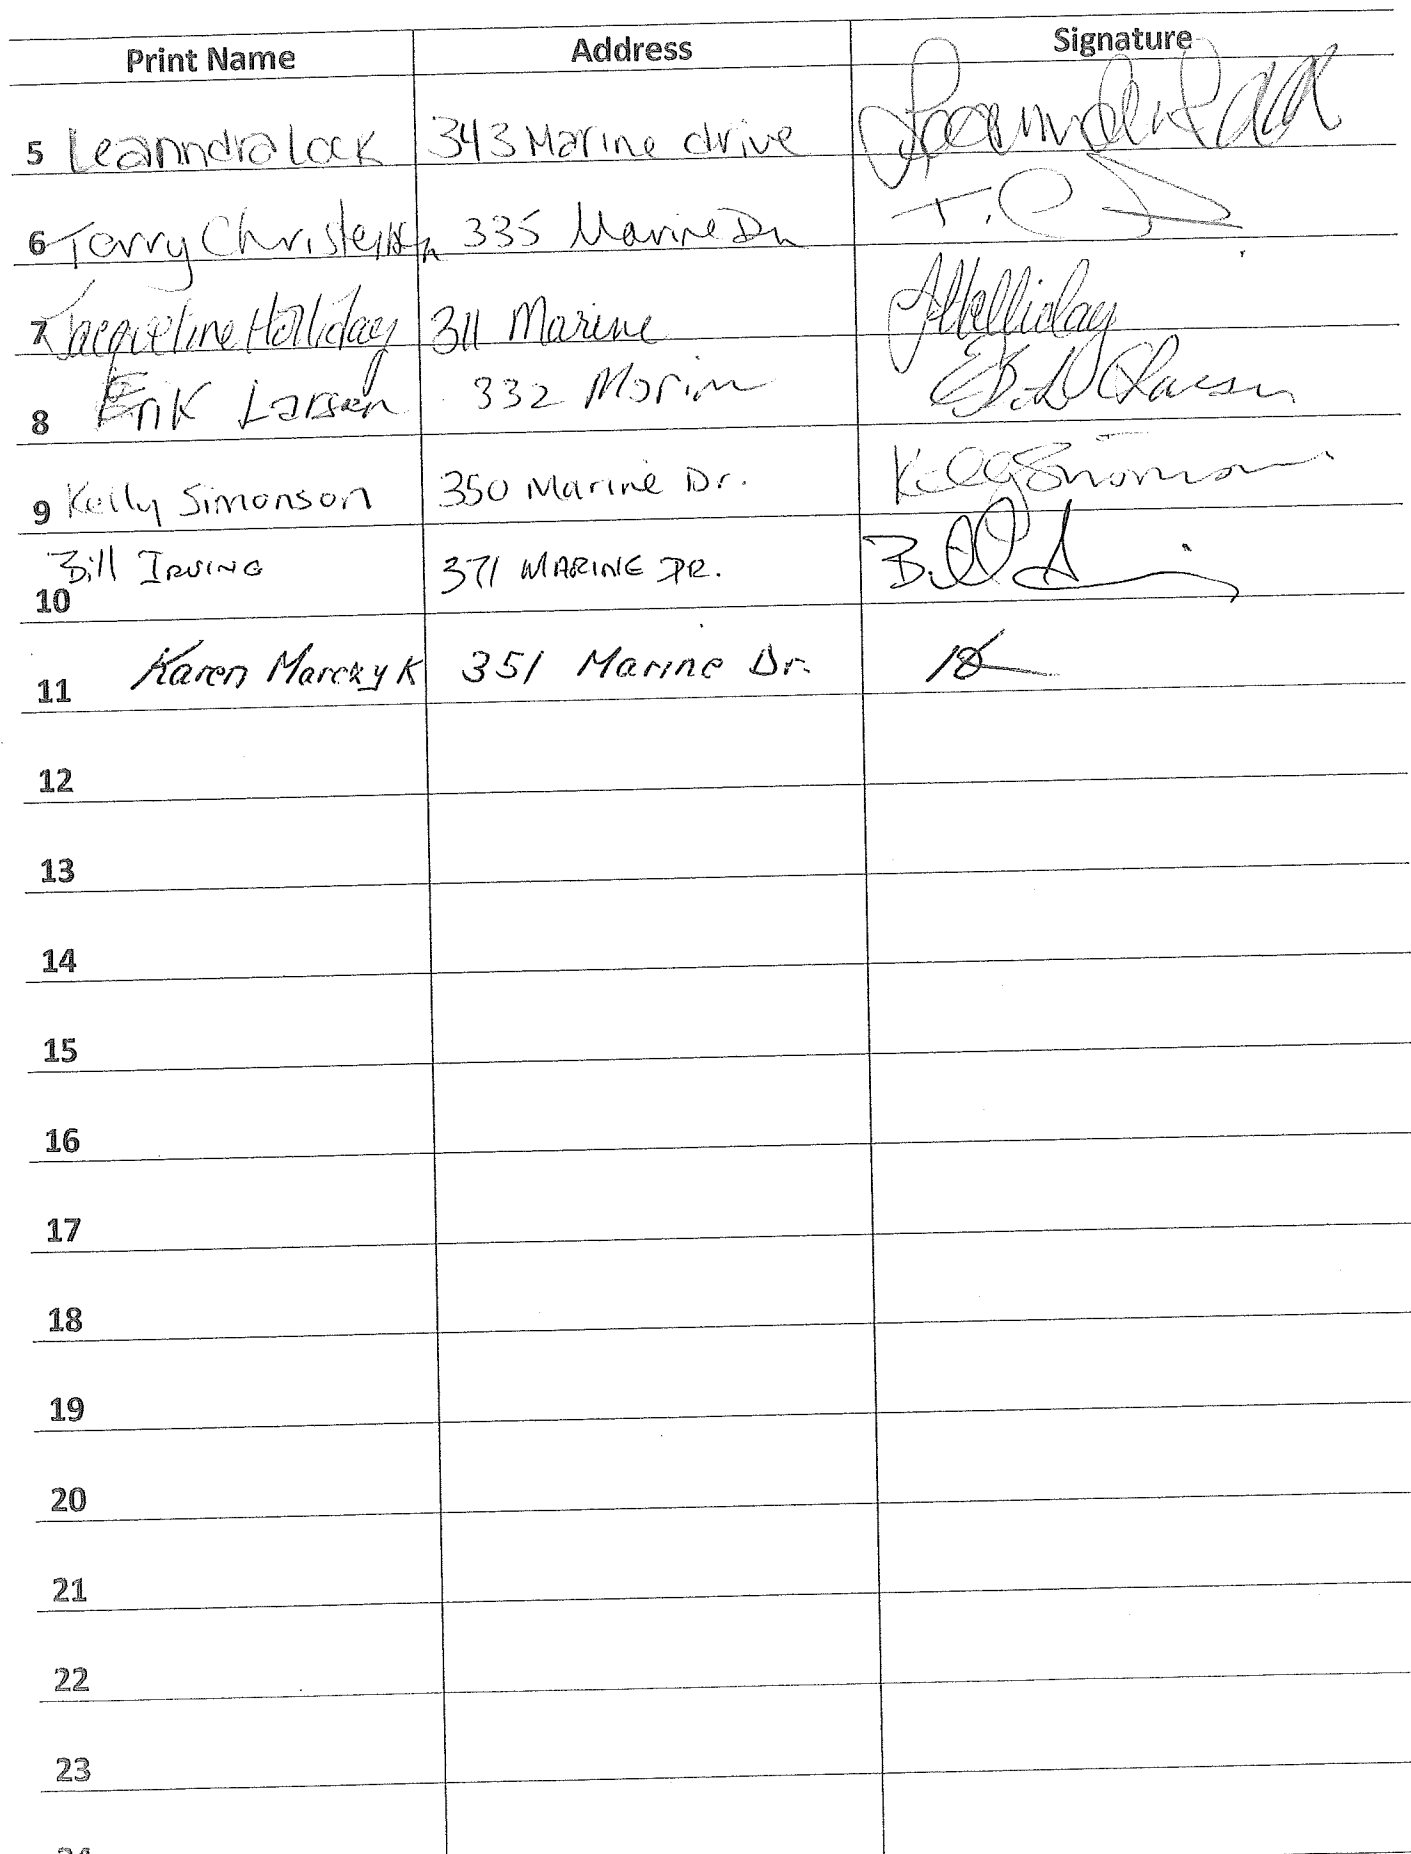 Print Name Address Signature
5 Leanndra Lock 343 Marine drive
6 Terry Christensen 335 Marine Dr
7 Jacqueline Holliday 311 Marine JHolliday
8 Erik Larsen 332 Marin Larsen
9 Kelly Simonson 350 Marine Dr. Kelly Simonson
10 Bill IRVING 371 MARINE DR. Bill
11 Karen Marczyk 351 Marine Dr.
12
13
14
15
16
17
18
19
20
21
22
23